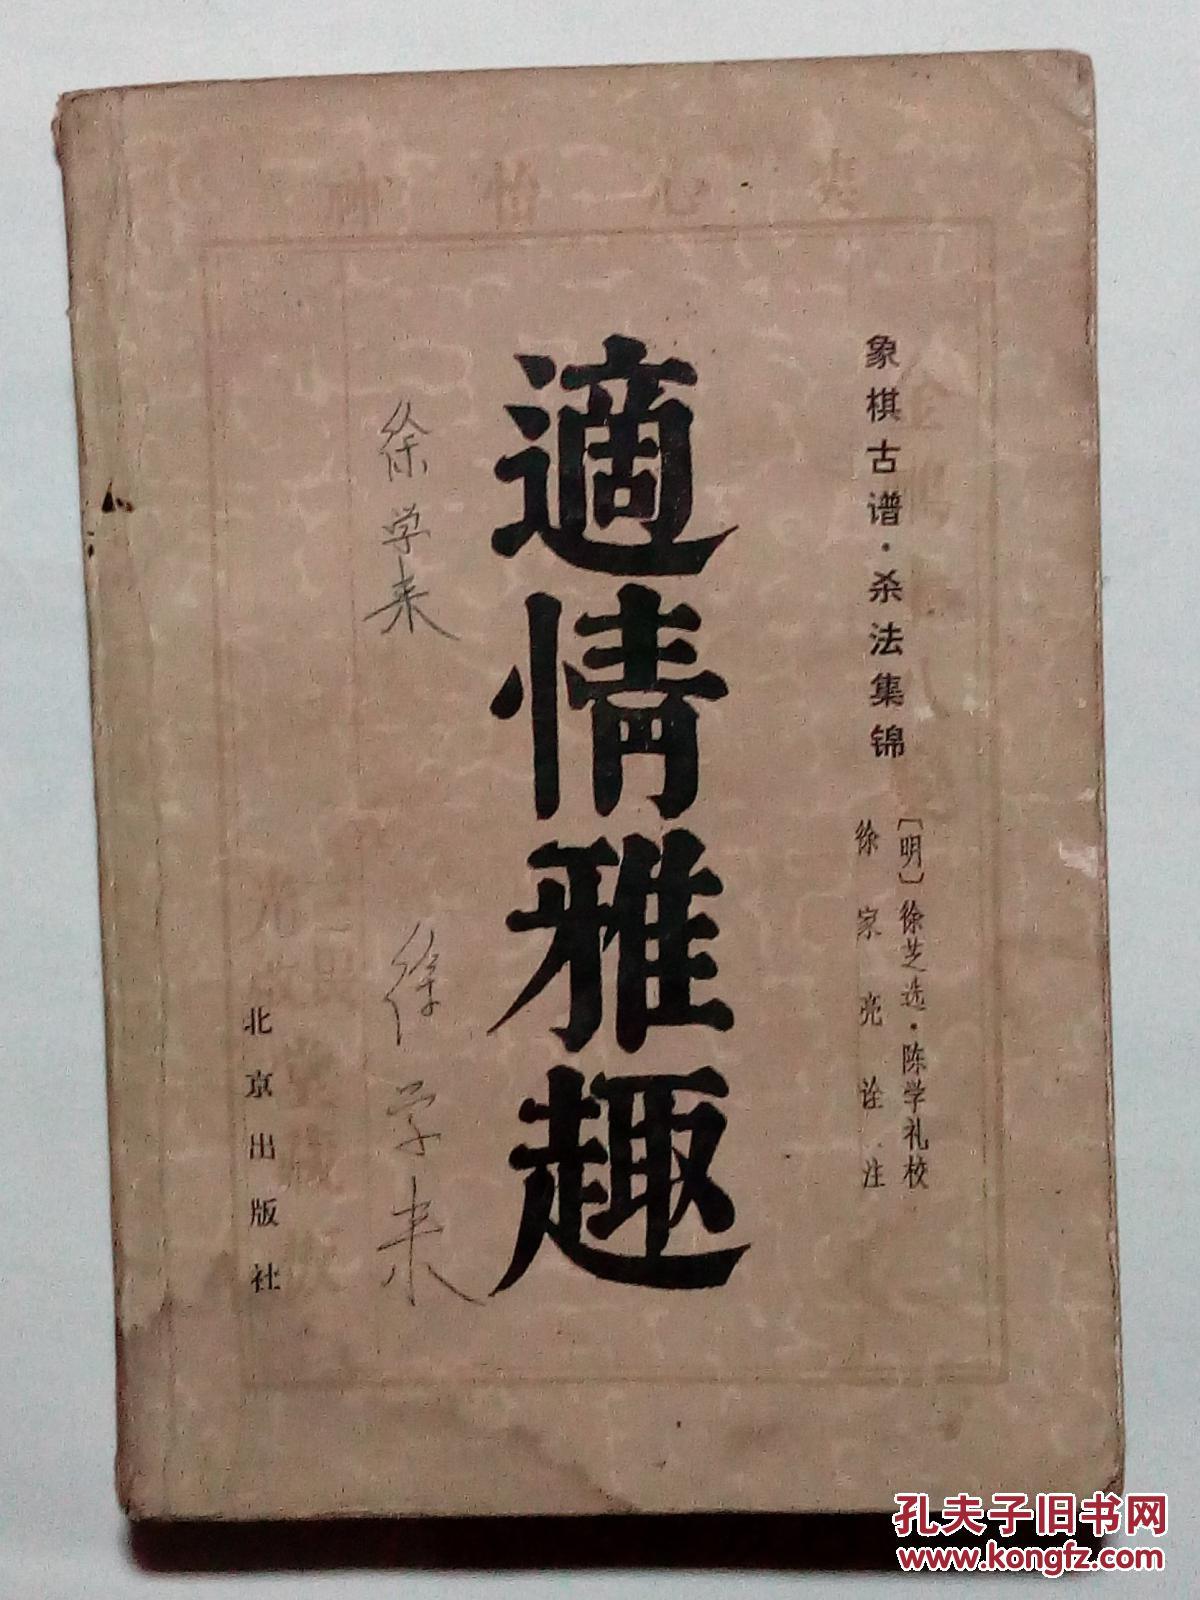 怡心
象棋古谱·杀法集锦
〔明〕徐芝选·陈学礼校
徐家亮诠注
適情雅趣
徐学来
徐学来
北京出版社
孔夫子旧书网
www.kongfz.com